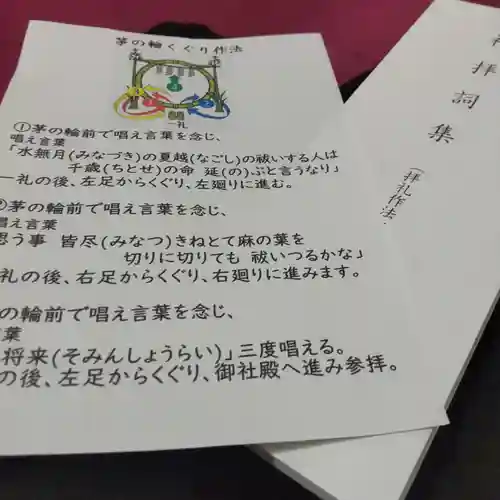 茅の輪くぐり作法
一礼
①茅の輪前で唱え言葉を念じ、
唱え言葉
「水無月(みなづき)の夏越(なごし)の祓いする人は
千歳(ちとせ)の命 延(の)ぶと言うなり」
一礼の後、左足からくぐり、左廻りに進む。
②茅の輪前で唱え言葉を念じ、
唱え言葉
思う事 皆尽(みなつ)きねとて麻の葉を
切りに切りても 祓いつるかな」
礼の後、右足からくぐり、右廻りに進みます。
の輪前で唱え言葉を念じ、
葉
将来(そみんしょうらい)」三度唱える。
の後、左足からくぐり、御社殿へ進み参拝。
拝詞集
(拝礼作法・